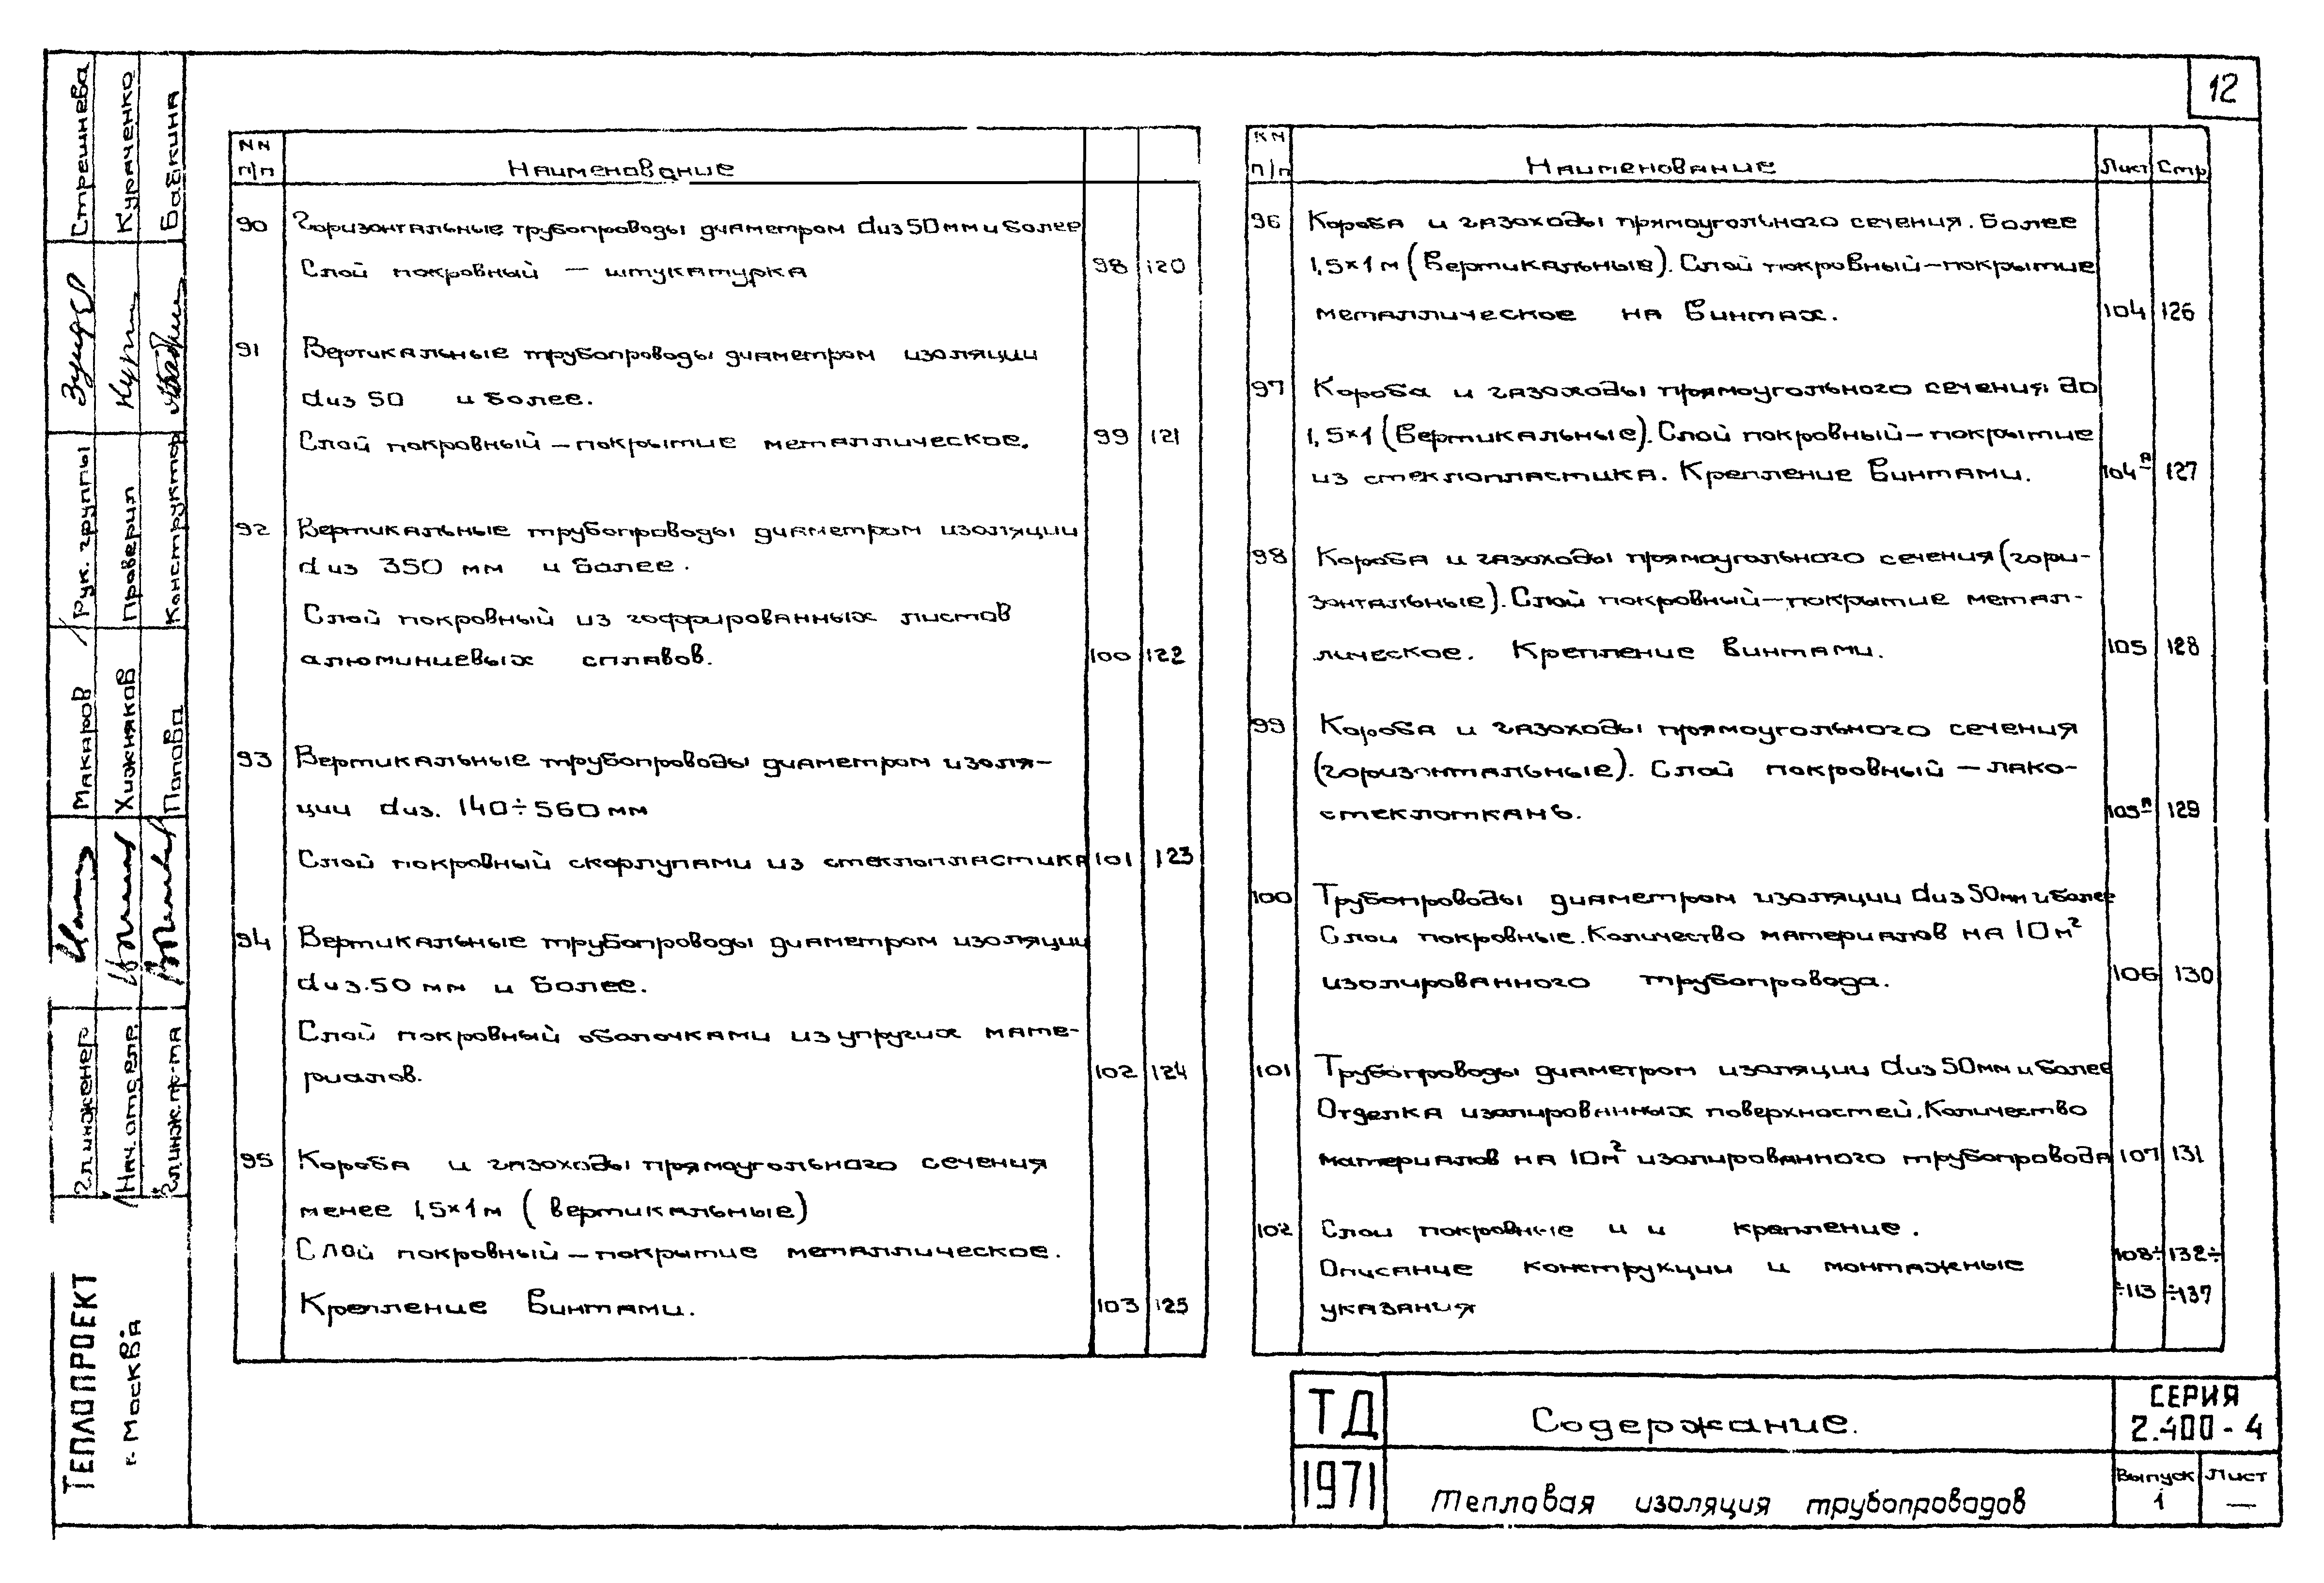 12
NN
п/п
Наименование
90 Горизонтальные трубопроводы диаметром dиз 50 мм и более
Слой покровный — штукатурка 98 120
91 Вертикальные трубопроводы диаметром изоляции
dиз 50 и более.
Слой покровный — покрытие металлическое. 99 121
92 Вертикальные трубопроводы диаметром изоляции
dиз 350 мм и более.
Слой покровный из гоффрированных листов
алюминиевых сплавов. 100 122
93 Вертикальные трубопроводы диаметром изоля-
ции dиз. 140÷560 мм
Слой покровный скорлупами из стеклопластика 101 123
94 Вертикальные трубопроводы диаметром изоляции
dиз. 50 мм и более.
Слой покровный оболочками из упругих мате-
риалов. 102 124
95 Короба и газоходы прямоугольного сечения
менее 1,5×1 м (вертикальные)
Слой покровный — покрытие металлическое.
Крепление винтами. 103 125
NN
п/п
Наименование Лист Стр
96 Короба и газоходы прямоугольного сечения. более
1,5×1 м (вертикальные). Слой покровный — покрытие
металлическое на винтах. 104 126
97 Короба и газоходы прямоугольного сечения до
1,5×1 (вертикальные). Слой покровный — покрытие
из стеклопластика. Крепление винтами. 104а 127
98 Короба и газоходы прямоугольного сечения (гори-
зонтальные). Слой покровный — покрытие метал-
лическое. Крепление винтами. 105 128
99 Короба и газоходы прямоугольного сечения
(горизонтальные). Слой покровный — лако-
стеклоткань. 105а 129
100 Трубопроводы диаметром изоляции dиз 50мм и более
Слои покровные. Количество материалов на 10 м²
изолированного трубопровода. 106 130
101 Трубопроводы диаметром изоляции dиз 50мм и более
Отделка изолированных поверхностей. Количество
материалов на 10м² изолированного трубопровода 107 131
102 Слои покровные и и крепление.
Описание конструкции и монтажные 108÷ 132÷
указания ÷113 ÷137
ТД
1971
Содержание.
Тепловая изоляция трубопроводов
СЕРИЯ
2.400-4
Выпуск Лист
1 —
ТЕПЛОПРОЕКT
г. Москва
Гл. инженер Макаров Рук. группы Стрешнева
Нач. отдела Хижняков Проверил Кураченко
Гл. инж. пр-та Попова Конструктор Бабкина